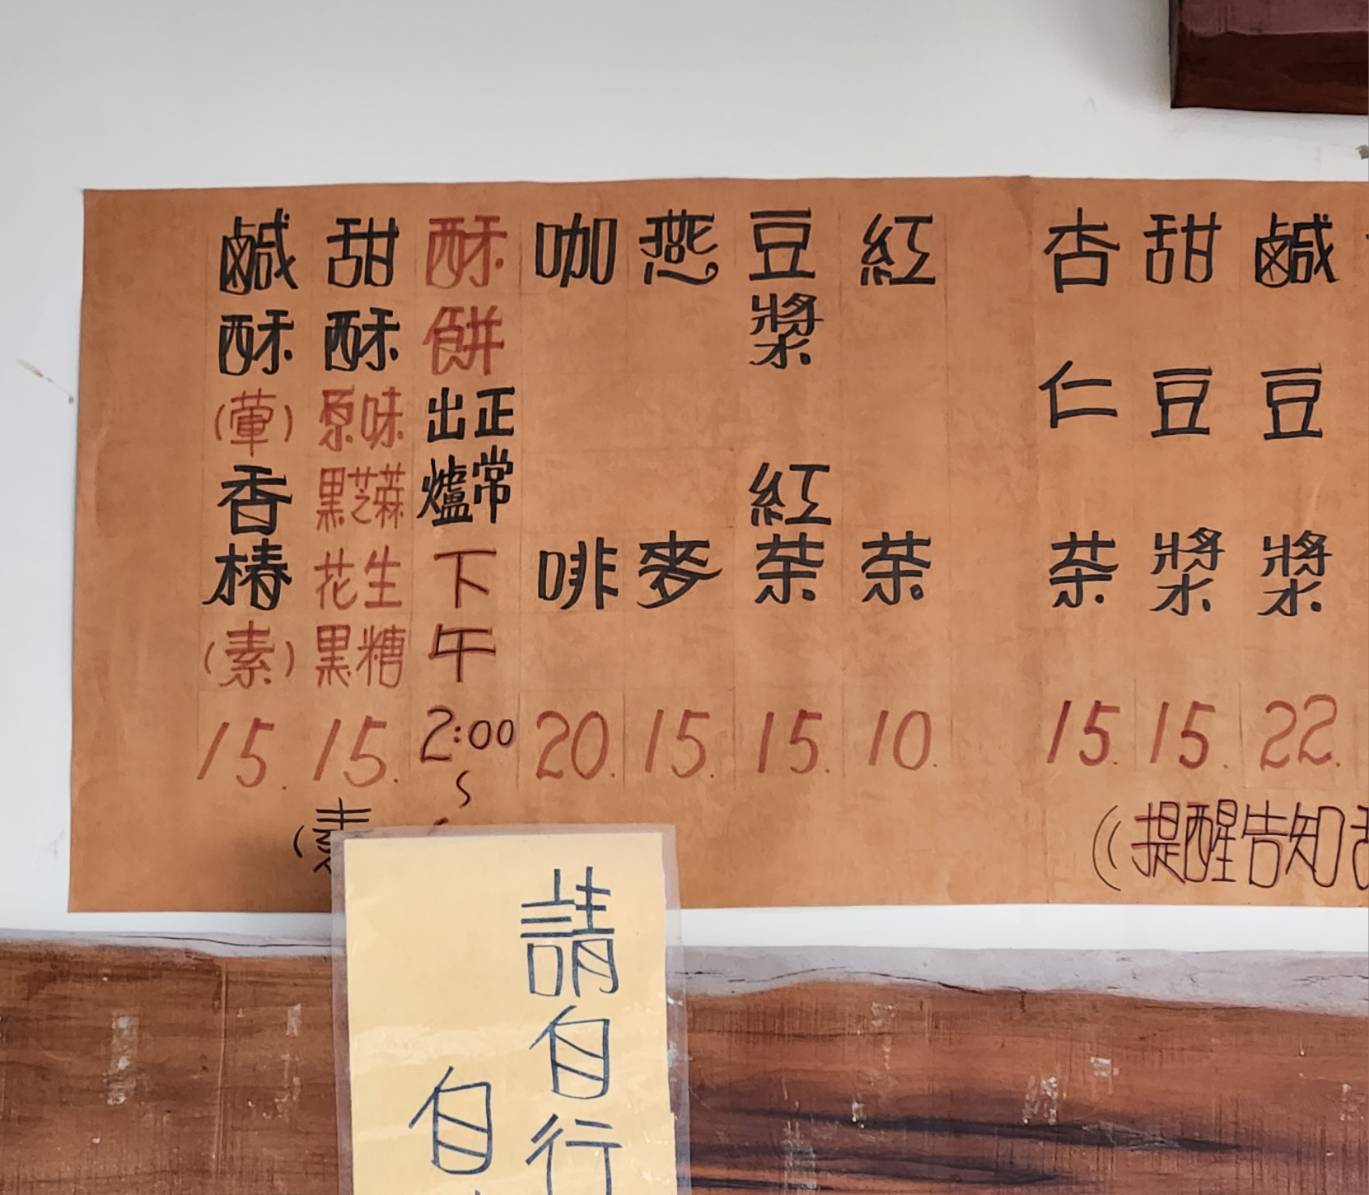 鹹豆漿 22.
甜豆漿 15.
杏仁茶 15.
紅茶 10.
豆漿紅茶 15.
燕麥 15.
咖啡 20.
酥餅 正常出爐 下午 2:00 ~
甜酥 原味 黑芝蔴 花生 黑糖 15.
鹹酥 (葷) 香椿 (素) 15.
((提醒告知
(素
請自行
自